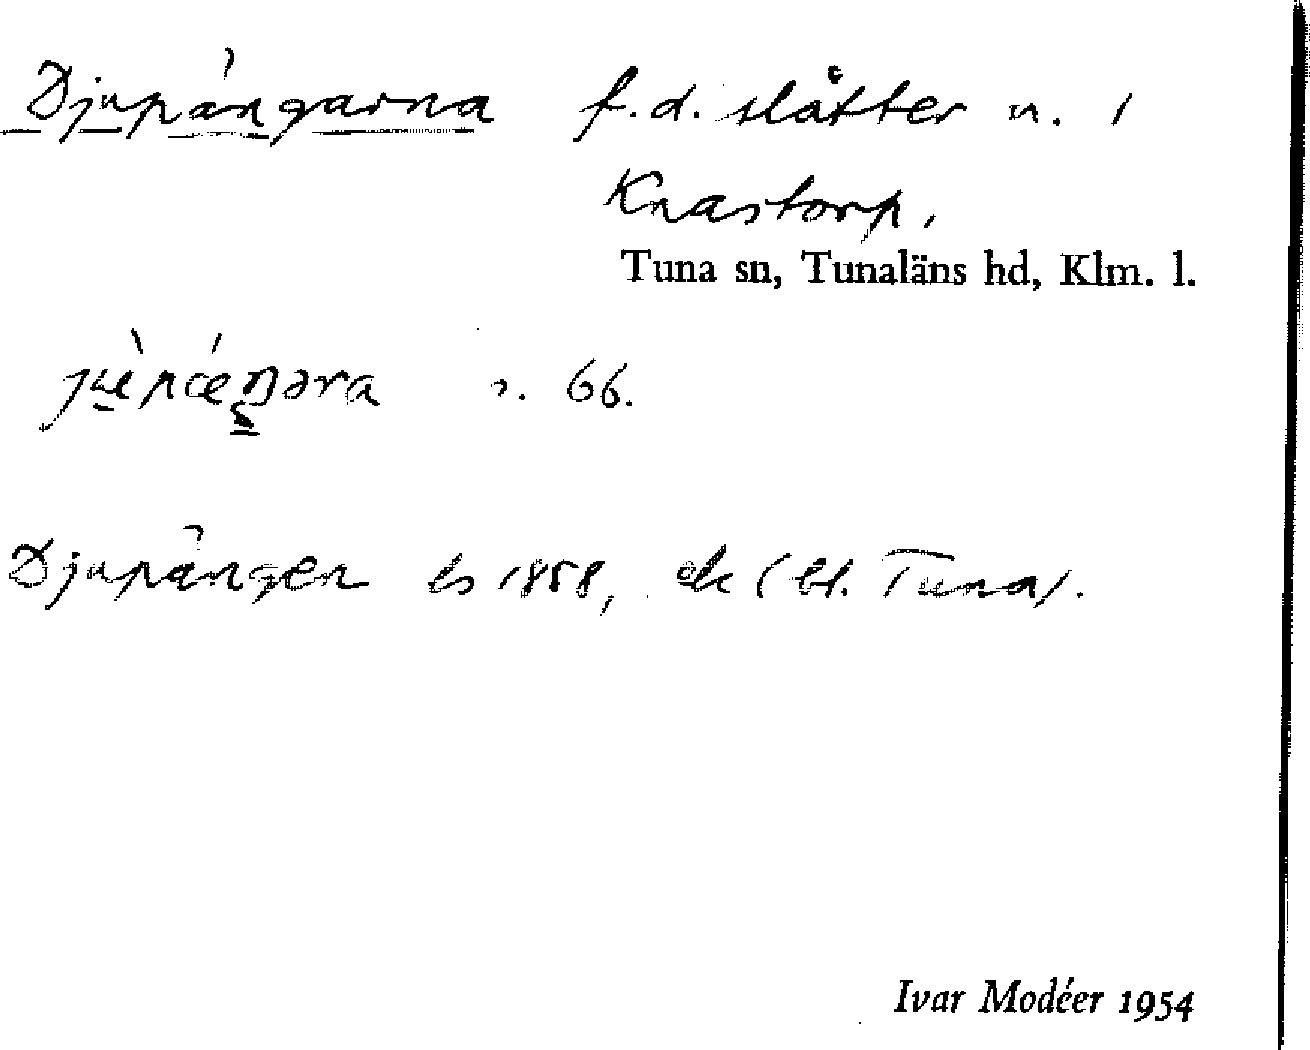 Djupängarna f.d. slåtter n. 1
Knastorp,
Tuna sn, Tunaläns hd, Klm. l.
66.
Djupängen ls 1858, ek (bl. Tuna).
Ivar Modéer 1954